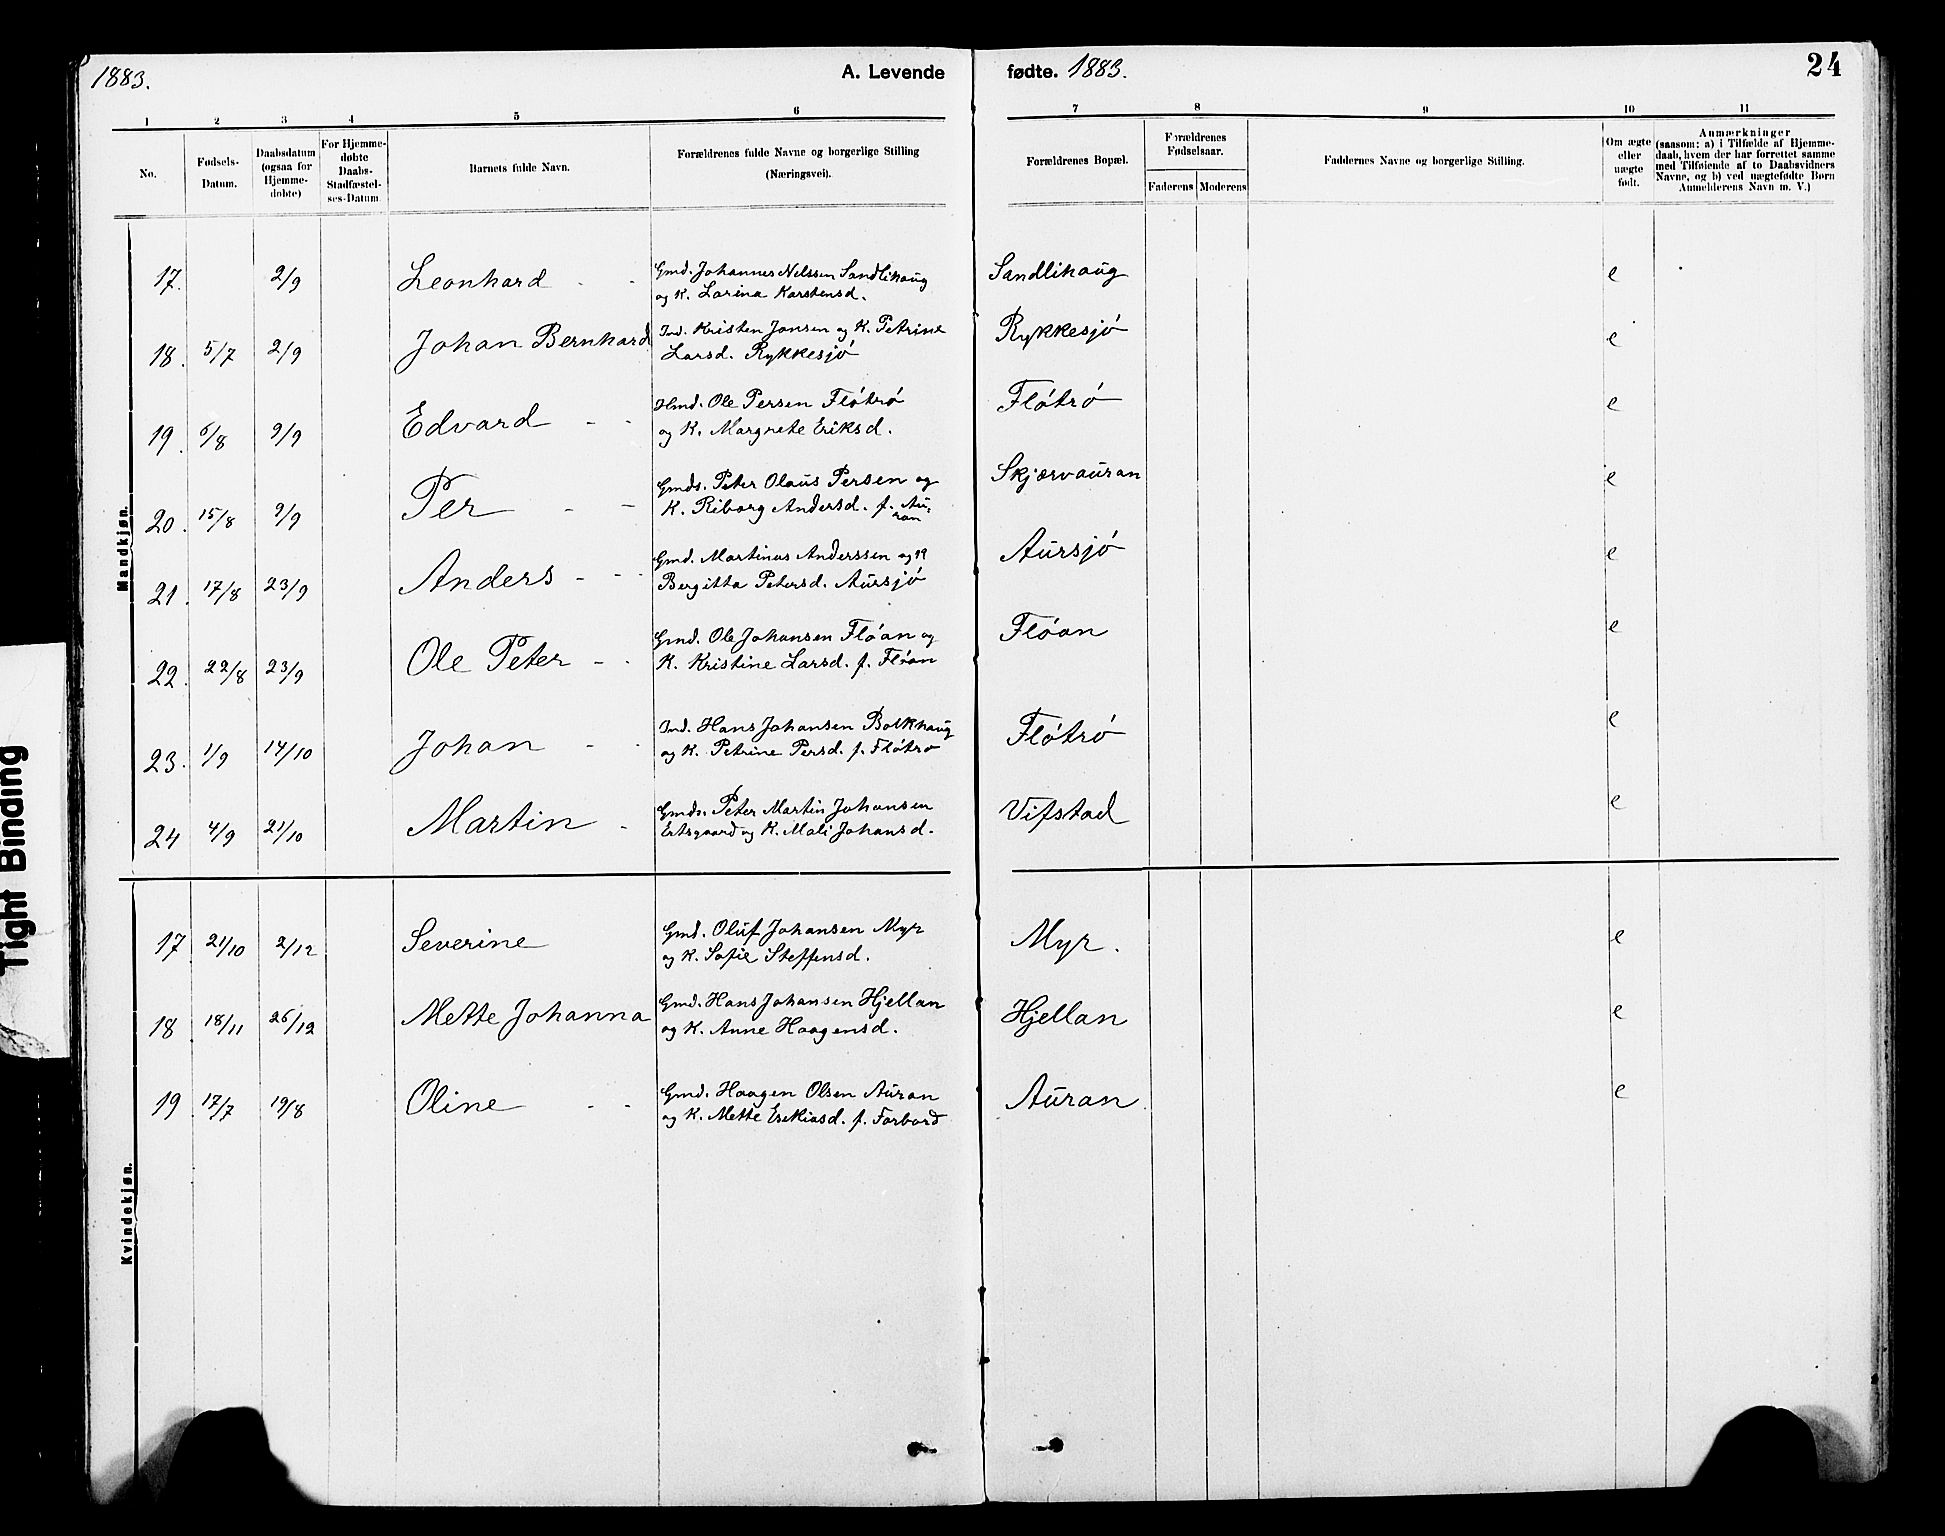 1883. A. Levende fødte. 1883. 24
1 2 3 4 5 6 7 8 9 10 11
No. Fødsels-Datum. Daabsdatum (ogsaa for Hjemme-døbte) For Hjemme-døbte Daabs-Stadfæstel-ses-Datum Barnets fulde Navn. Forældrenes fulde Navne og borgerlige Stilling (Næringsvei). Forældrenes Bopæl. Forældrenes Fødselsaar. Faderens Moderens Faddernes Navne og borgerlige Stilling. Om ægte eller uægte født. Anmærkninger (saasom: a) i Tilfælde af Hjemme-daab, hvem der har forrettet samme med Tilføiende af to Daabsvidners Navne, og b) ved uægtefødte Børn Anmelderens Navn m. V.)
Mandkjøn.
17. 2/9 Leonhard - - Gmd. Johannes Nelssen Sandlihaug Sandlihaug e
og K. Larina Karstensd.
18. 5/7 2/9 Johan Bernhard Ind. Kristen Jonsen og K. Petrine Rykkesjó e
Larsd. Rykkesjó
19. 6/8 9/9 Edvard - - Hmd. Ole Persen Flótró Flótró e
og K. Margrete Eriksd.
20. 15/8 9/9 Per - - Gmds. Peter Olaus Persen og Skjærvauran e
K. Riborg Andersd. f. Au-
ran
21. 17/8 23/9 Anders - - - Gmd. Martinus Anderssen og K Aursjó e
Bergitta Petersd. Aursjó
22. 22/8 23/9 Ole Peter - - Gmd. Ole Johansen Flóan og Flóan e
K. Kristine Larsd. f. Flóan
23. 1/9 14/10 Johan - - Ind. Hans Johansen Bolkhaug Flótró e
og K. Petrine Persd. f. Flótró
24 4/9 21/10 Martin - Gmds. Peter Martin Johansen Vifstad e
Ertsgaard og K. Mali Johansd.
Kvindekjøn.
17 21/10 2/12 Severine Gmd. Oluf Johansen Myr Myr. e
og K. Sofie Steffensd.
18 18/11 26/12 Mette Johanna Gmd. Hans Johansen Hjellan Hjellan e
og K. Anne Haagensd.
19 17/7 19/8 Oline - - Gmd. Haagen Olsen Auran Auran e
og K. Mette Esekiasd. f. Forbord
Tight Binding